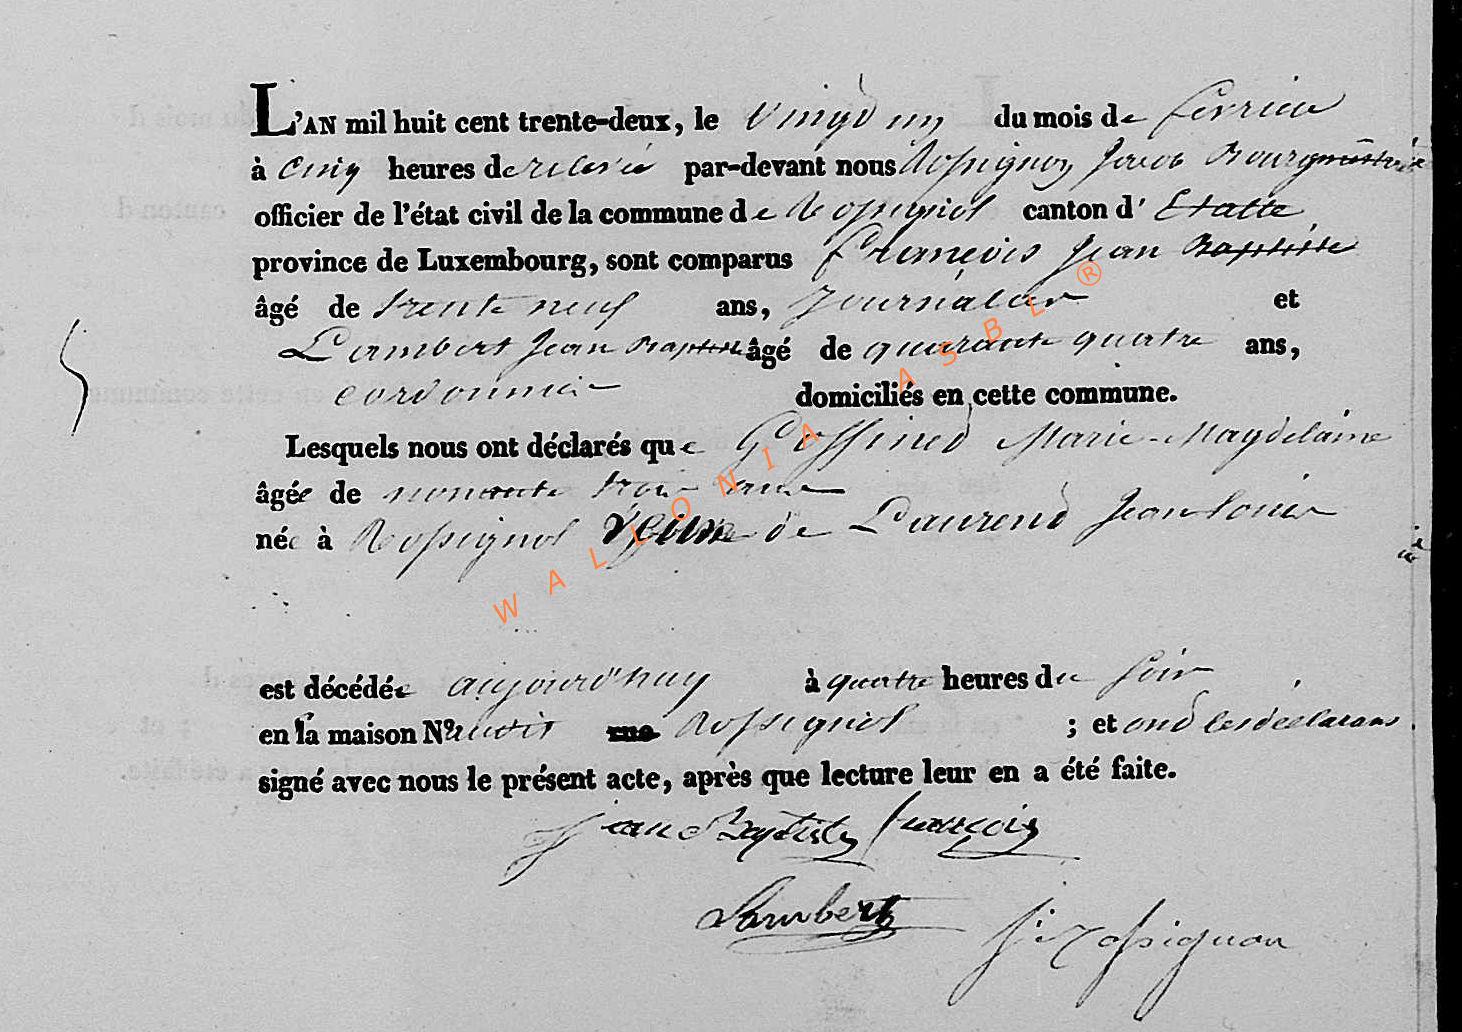 L'AN mil huit cent trente-deux, le vingt un du mois de fevrier
à cinq heures de relevée par-devant nous Rossignon Jacob Bourgmestre
officier de l'état civil de la commune de Rossignol canton d' Etalle
province de Luxembourg, sont comparus François Jean Baptiste
âgé de trente neuf ans, Journalier et
Lambert Jean Baptiste âgé de quarante quatre ans,
cordonnier domiciliés en cette commune.
Lesquels nous ont déclarés que Goffinet Marie-Magdelaine
âgée de nonante trois ans
née à Rossignol veuve de Laurent Jean louis
est décédée aujourd'huy à quatre heures du soir
en la maison Nº rue Rossignol ; et ont les déclarans
signé avec nous le présent acte, après que lecture leur en a été faite.
Jean Baptiste françois
Lambert
J. rossignon
WALLONIA ASBL ®